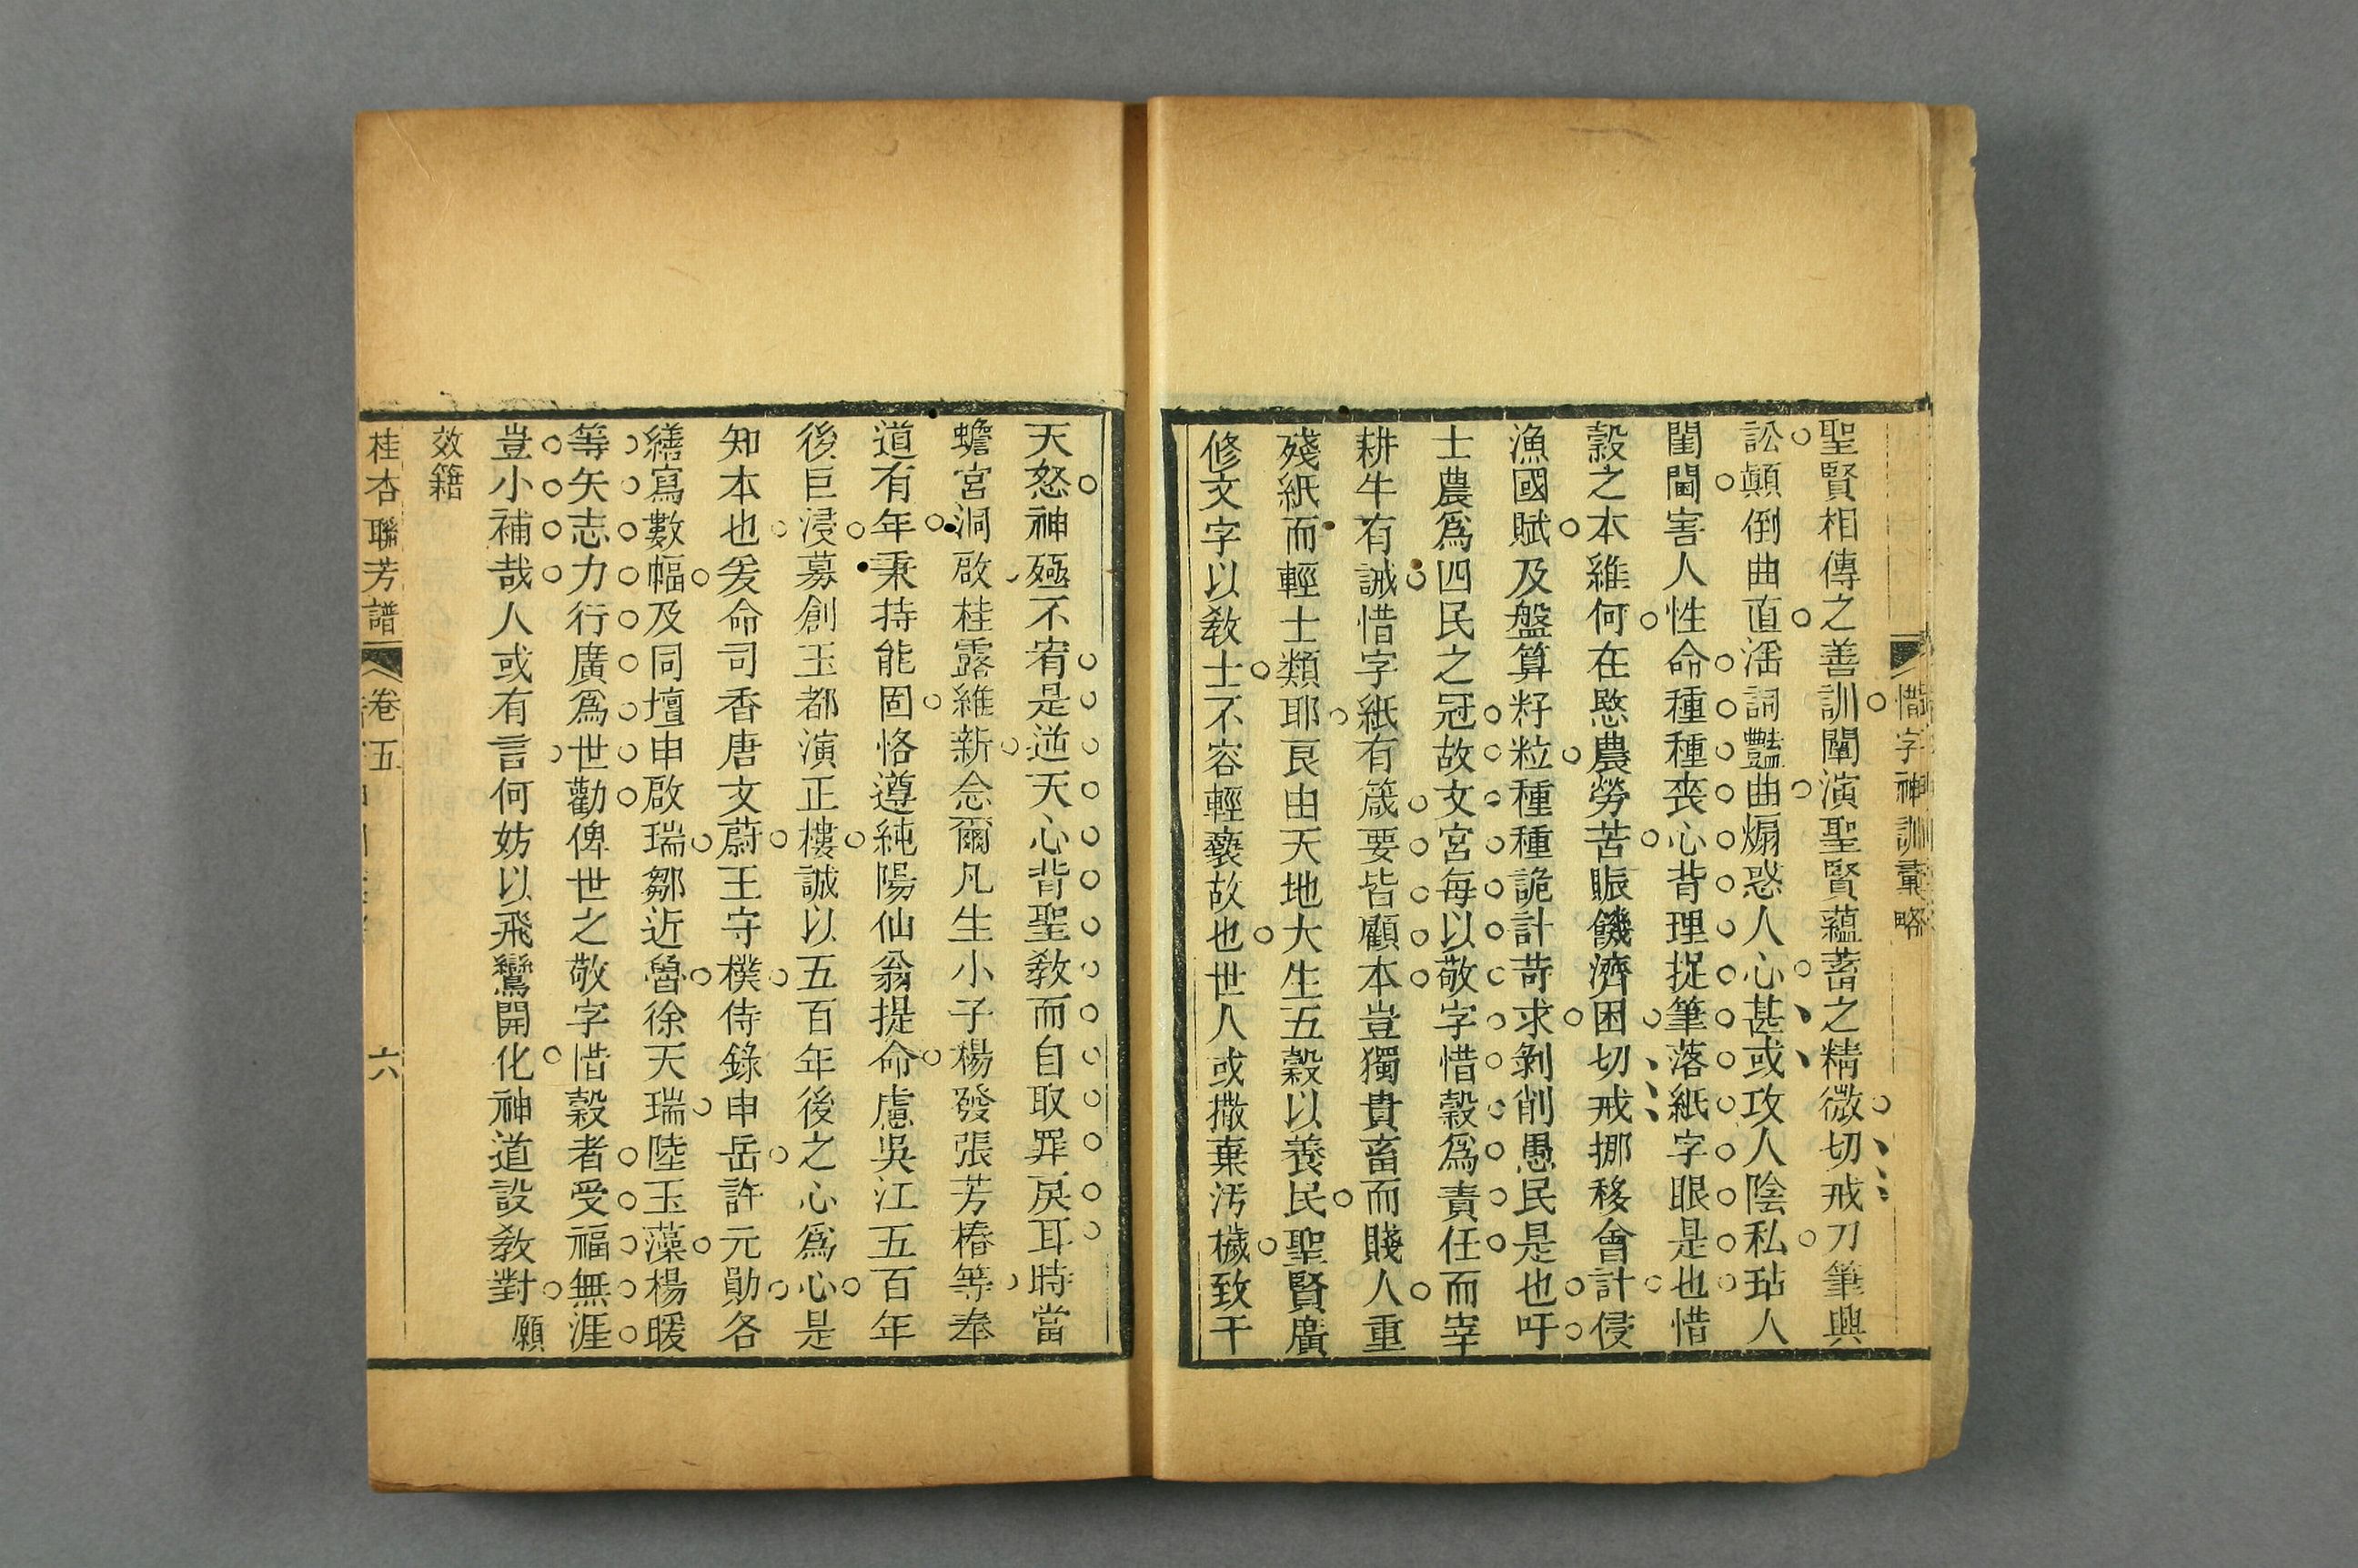 惜字神訓彙略
聖賢相傳之善訓闡演聖賢蘊蓄之精微切戒刀筆興
訟顛倒曲直滛詞豔曲煽惑人心甚或攻人陰私玷人
閨閫害人性命種種喪心背理捉筆落紙字眼是也惜
穀之本維何在愍農勞苦賑饑濟困切戒挪移會計侵
漁國賦及盤算籽粒種種詭計苛求剝削愚民是也吁
士農爲四民之冠故文宮每以敬字惜穀爲責任而宰
耕牛有誡惜字紙有箴要皆顧本豈獨貴畜而賤人重
殘紙而輕士類耶良由天地大生五穀以養民聖賢廣
修文字以敎士不容輕褻故也世人或撒棄汚檅致干
天怒神殛不宥是逆天心背聖敎而自取罪戾耳時當
蟾宮洞啟桂露維新念爾凡生小子楊發張芳椿等奉
道有年秉持能固恪遵純陽仙翁提命慮吳江五百年
後巨浸募創玉都演正樓誠以五百年後之心爲心是
知本也爰命司香唐文蔚王守樸侍錄申岳許元勛各
繕寫數幅及同壇申啟瑞鄒近魯徐天瑞陸玉藻楊暖
等矢志力行廣爲世勸俾世之敬字惜穀者受福無涯
豈小補哉人或有言何妨以飛鸞開化神道設敎對願
效籍
桂杏聯芳譜 卷五 六